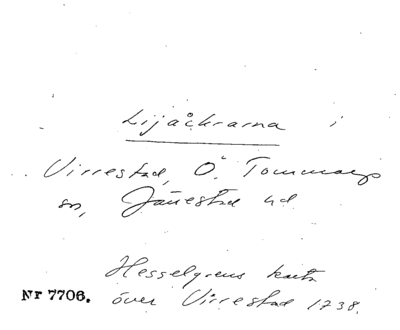 Lijåkrarna i
Virrestad, Ö. Tommarps
sn, Järrestad hd
Hesselgrens karta
Nr 7706. över Virrestad 1738.